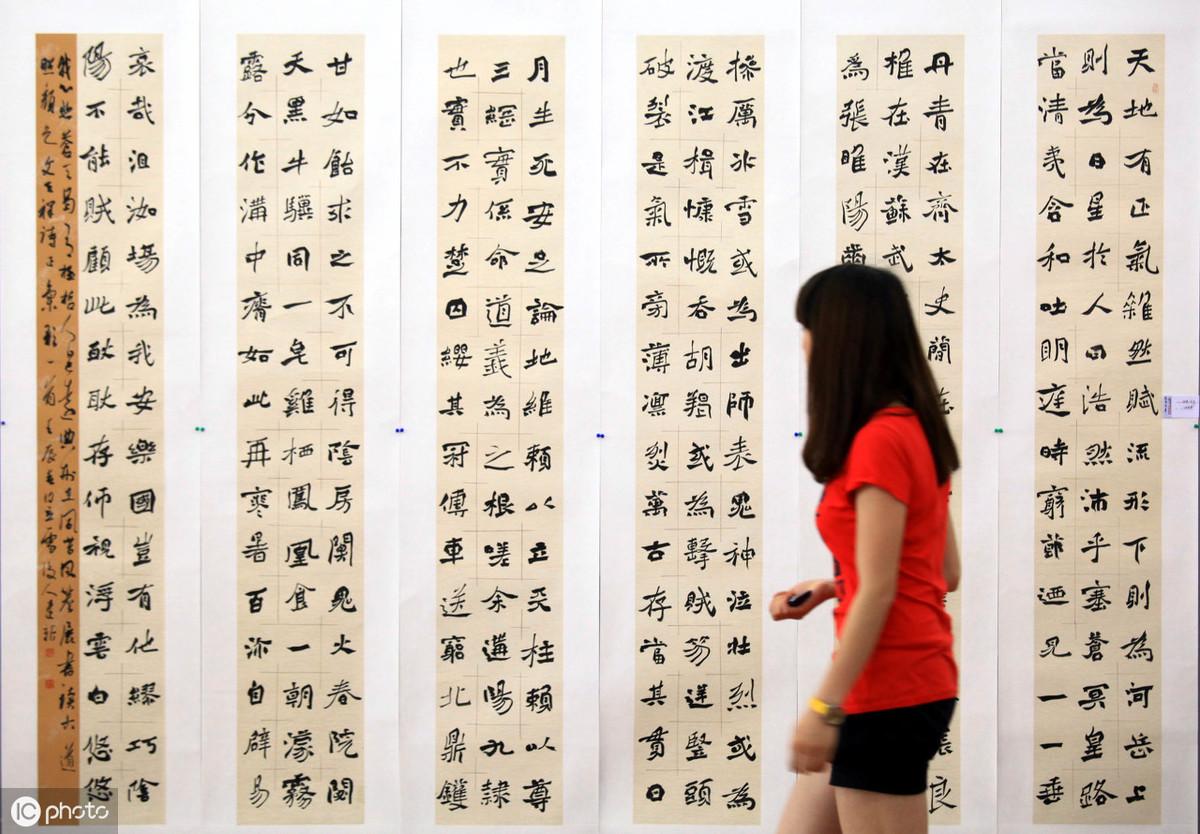 天地有正氣雜然賦流形下則為河岳上
則為日星於人曰浩然沛乎塞蒼冥皇路
當清夷含和吐明庭時窮節迺見一一垂
丹青在齊太史簡在張良
椎在漢蘇武
為張睢陽齒
操厲冰雪或為出師表鬼神泣壯烈或為
渡江楫慷慨吞胡羯或為擊賊笏逆豎頭
破裂是氣所旁薄凛烈萬古存當其貫日
月生死安足論地維賴以立天柱賴以尊
三綱實係命道義為之根嗟余遘陽九隸
也實不力楚囚纓其冠傳車送窮北鼎鑊
甘如飴求之不可得陰房闃鬼火春院閟
天黑牛驥同一皂雞栖鳳凰食一朝濛霧
露分作溝中瘠如此再寒暑百沴自辟易
哀哉沮洳場為我安樂國豈有他繆巧陰
陽不能賊顧此耿耿存仰視浮雲白悠悠
我心悲蒼天曷有極哲人日遠典刑在夙昔風簷展書讀古道
照顏色文天祥詩正氣歌一首
IC photo